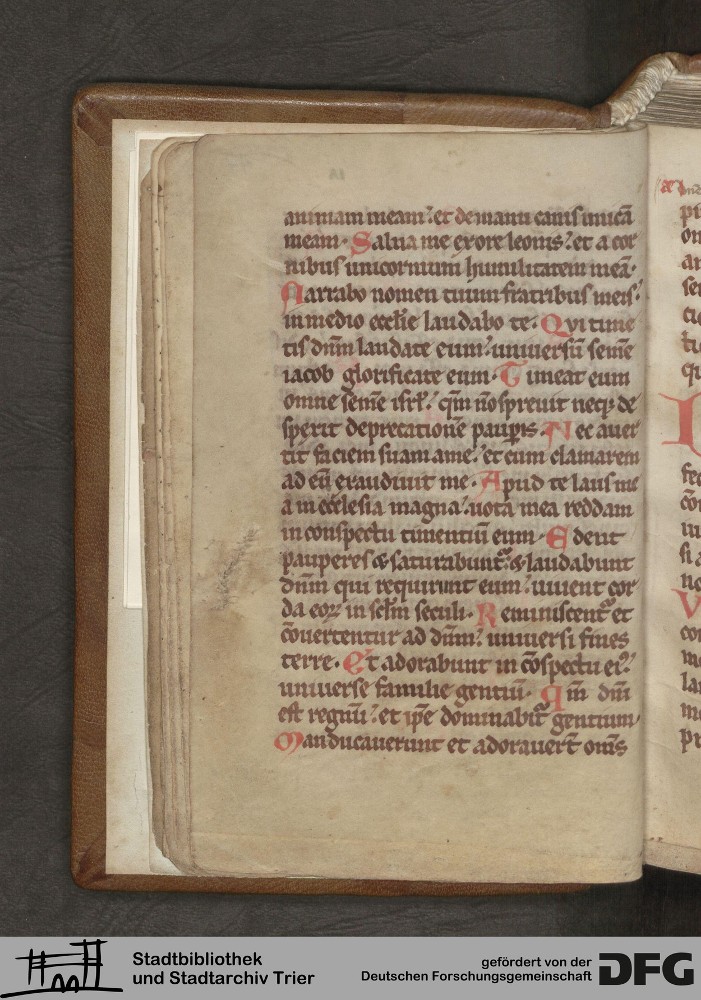 animam meam: et demanu canis unicã
meam. Salua me exore leonis: et a cor
nibus unicornium humilitatem meã.
Narrabo nomen tuum fratribus meis:
inmedio eccl'ie laudabo te. Qui time
tis dnm̃ laudate eum: uniuersũ semẽ
iacob glorificate eum. Timeat eum
omne semẽ isrl': qm̃ nõ spreuit neq; de
sperit deprecationẽ paupis. Nec auer
tit faciem suam a me: et cum clamarem
ad eũ exaudiuit me. Apud te laus me
a in ecclesia magna: uota mea reddam
in conspectu timentiũ eum. Edent
pauperes & saturabunt: & laudabunt
dnm̃ qui requirunt eum: uiuent cor
da eoꝝ in sclm̃ seculi. Reminiscent et
cõuertentur ad dnm̃: uniuersi fines
terre. Et adorabunt in cõspectu ei':
uniuerse familie gentiũ. Qm̃ dnĩ
est regnũ: et ipẽ dominabit gentium.
Manducauerunt et adorauert om̃s
Stadtbibliothek
und Stadtarchiv Trier
gefördert von der
Deutschen Forschungsgemeinschaft
DFG